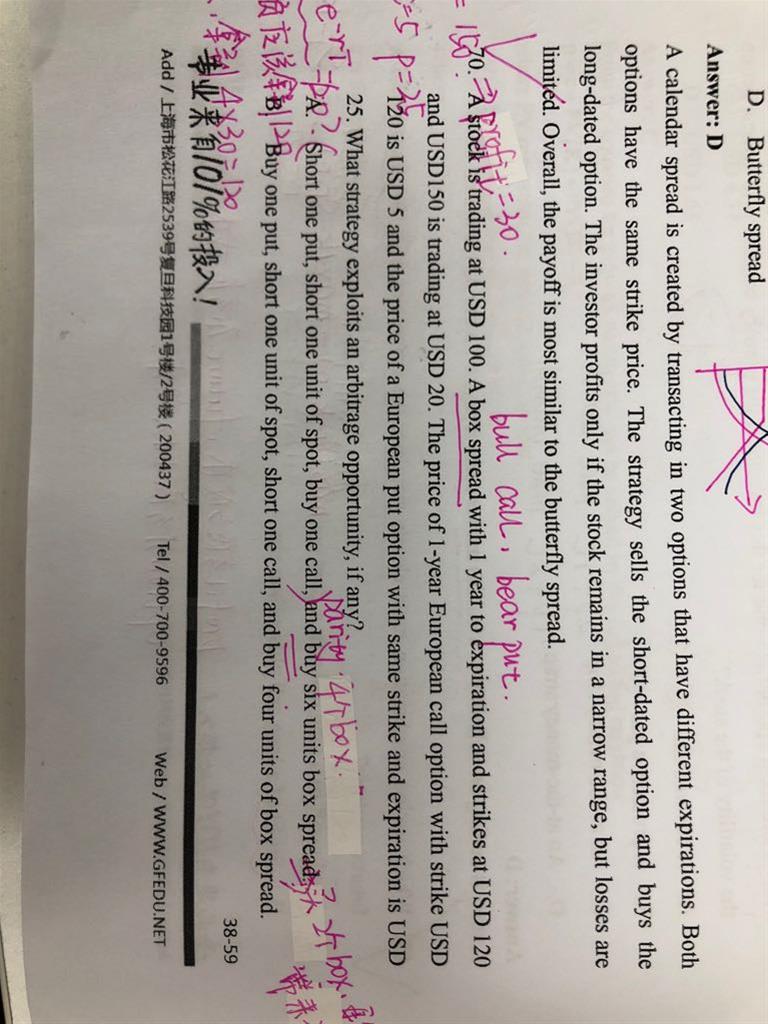 D. Butterfly spread
Answer: D
A calendar spread is created by transacting in two options that have different expirations. Both
options have the same strike price. The strategy sells the short-dated option and buys the
long-dated option. The investor profits only if the stock remains in a narrow range, but losses are
limited. Overall, the payoff is most similar to the butterfly spread.
bull call, bear put.
= 150. ⇒ profit = 30.
70. A stock is trading at USD 100. A box spread with 1 year to expiration and strikes at USD 120
and USD150 is trading at USD 20. The price of 1-year European call option with strike USD
=5 p=25
120 is USD 5 and the price of a European put option with same strike and expiration is USD
25 What strategy exploits an arbitrage opportunity, if any?
parity. 4个box.
A. Short one put, short one unit of spot, buy one call, and buy six units box spread.
2个box.
B. Buy one put, short one unit of spot, short one call, and buy four units of box spread.
4×30=120
38-59
毕业来自101%的投入!
Add / 上海市松花江路2539号复旦科技园1号楼/2号楼(200437) Tel / 400-700-9596 Web / WWW.GFEDU.NET